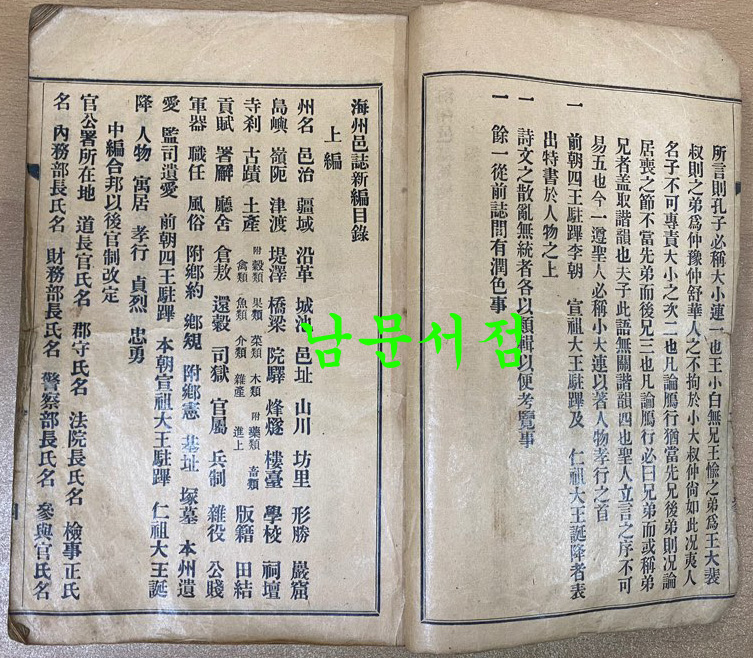 所言則孔子必稱大小連一也王小白無兄王愉之弟爲王大裴
叔則之弟爲仲豫仲舒華人之不拘於小大叔仲尙如此况夷人
名子不可專責大小之次二也凡論鴈行猶當先兄後弟則况論
居喪之節不當先弟而後兄三也凡論鴈行必曰兄弟而或稱弟
兄者盖取諧韻也夫子此語無關諧韻四也聖人立言之序不可
易五也今一遵聖人必稱小大連以著人物孝行之首
一 前朝四王駐蹕李朝 宣祖大王駐蹕及 仁祖大王誕降者表
出特書於人物之上
一 詩文之散亂無統者各以類輯以便考覽事
一 餘一從前誌間有潤色事
海州邑誌新編目錄
上編
州名 邑治 疆域 沿革 城池 邑址 山川 坊里 形勝 巖窟
島嶼 嶺阨 津渡 堤澤 橋梁 院驛 烽燧 樓臺 學校 祠壇
寺刹 古蹟 土產 附 穀類 果類 菜類 木類 附 藥類 畜類 禽類 魚類 介類 雜產 進上 版籍 田結
貢賦 署廨 廳舍 倉敖 還穀 司獄 官屬 兵制 雜役 公賤
軍器 職任 風俗 附鄕約 鄕規 附鄕憲 基址 塚墓 本州遺
愛 監司遺愛 前朝四王駐蹕 本朝宣祖大王駐蹕 仁祖大王誕
降 人物 寓居 孝行 貞烈 忠勇
中編合邦以後官制改定
官公署所在地 道長官氏名 郡守氏名 法院長氏名 檢事正氏
名 內務部長氏名 財務部長氏名 警察部長氏名 參與官氏名
남문서점